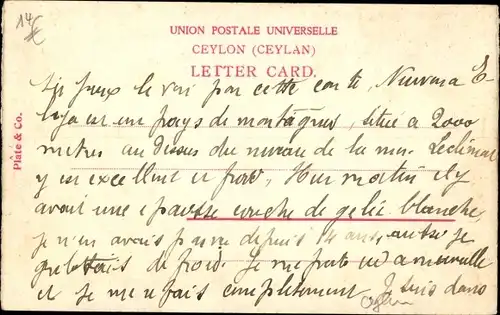 14
UNION POSTALE UNIVERSELLE
CEYLON (CEYLAN)
LETTER CARD.
Plâté & Co.
le voir par cette carte, Nuwara E
lya est un pays de montagnes, située à 2000
mètres au dessus du niveau de la mer. Le climat
y est excellent et froid. Hier matin il y
avait une épaisse couche de gelée blanche,
je n'en avais pas vu depuis 14 ans, aussi je
grelottais de froid. Je me porte à merveille
et je me refais complètement. Je suis dans